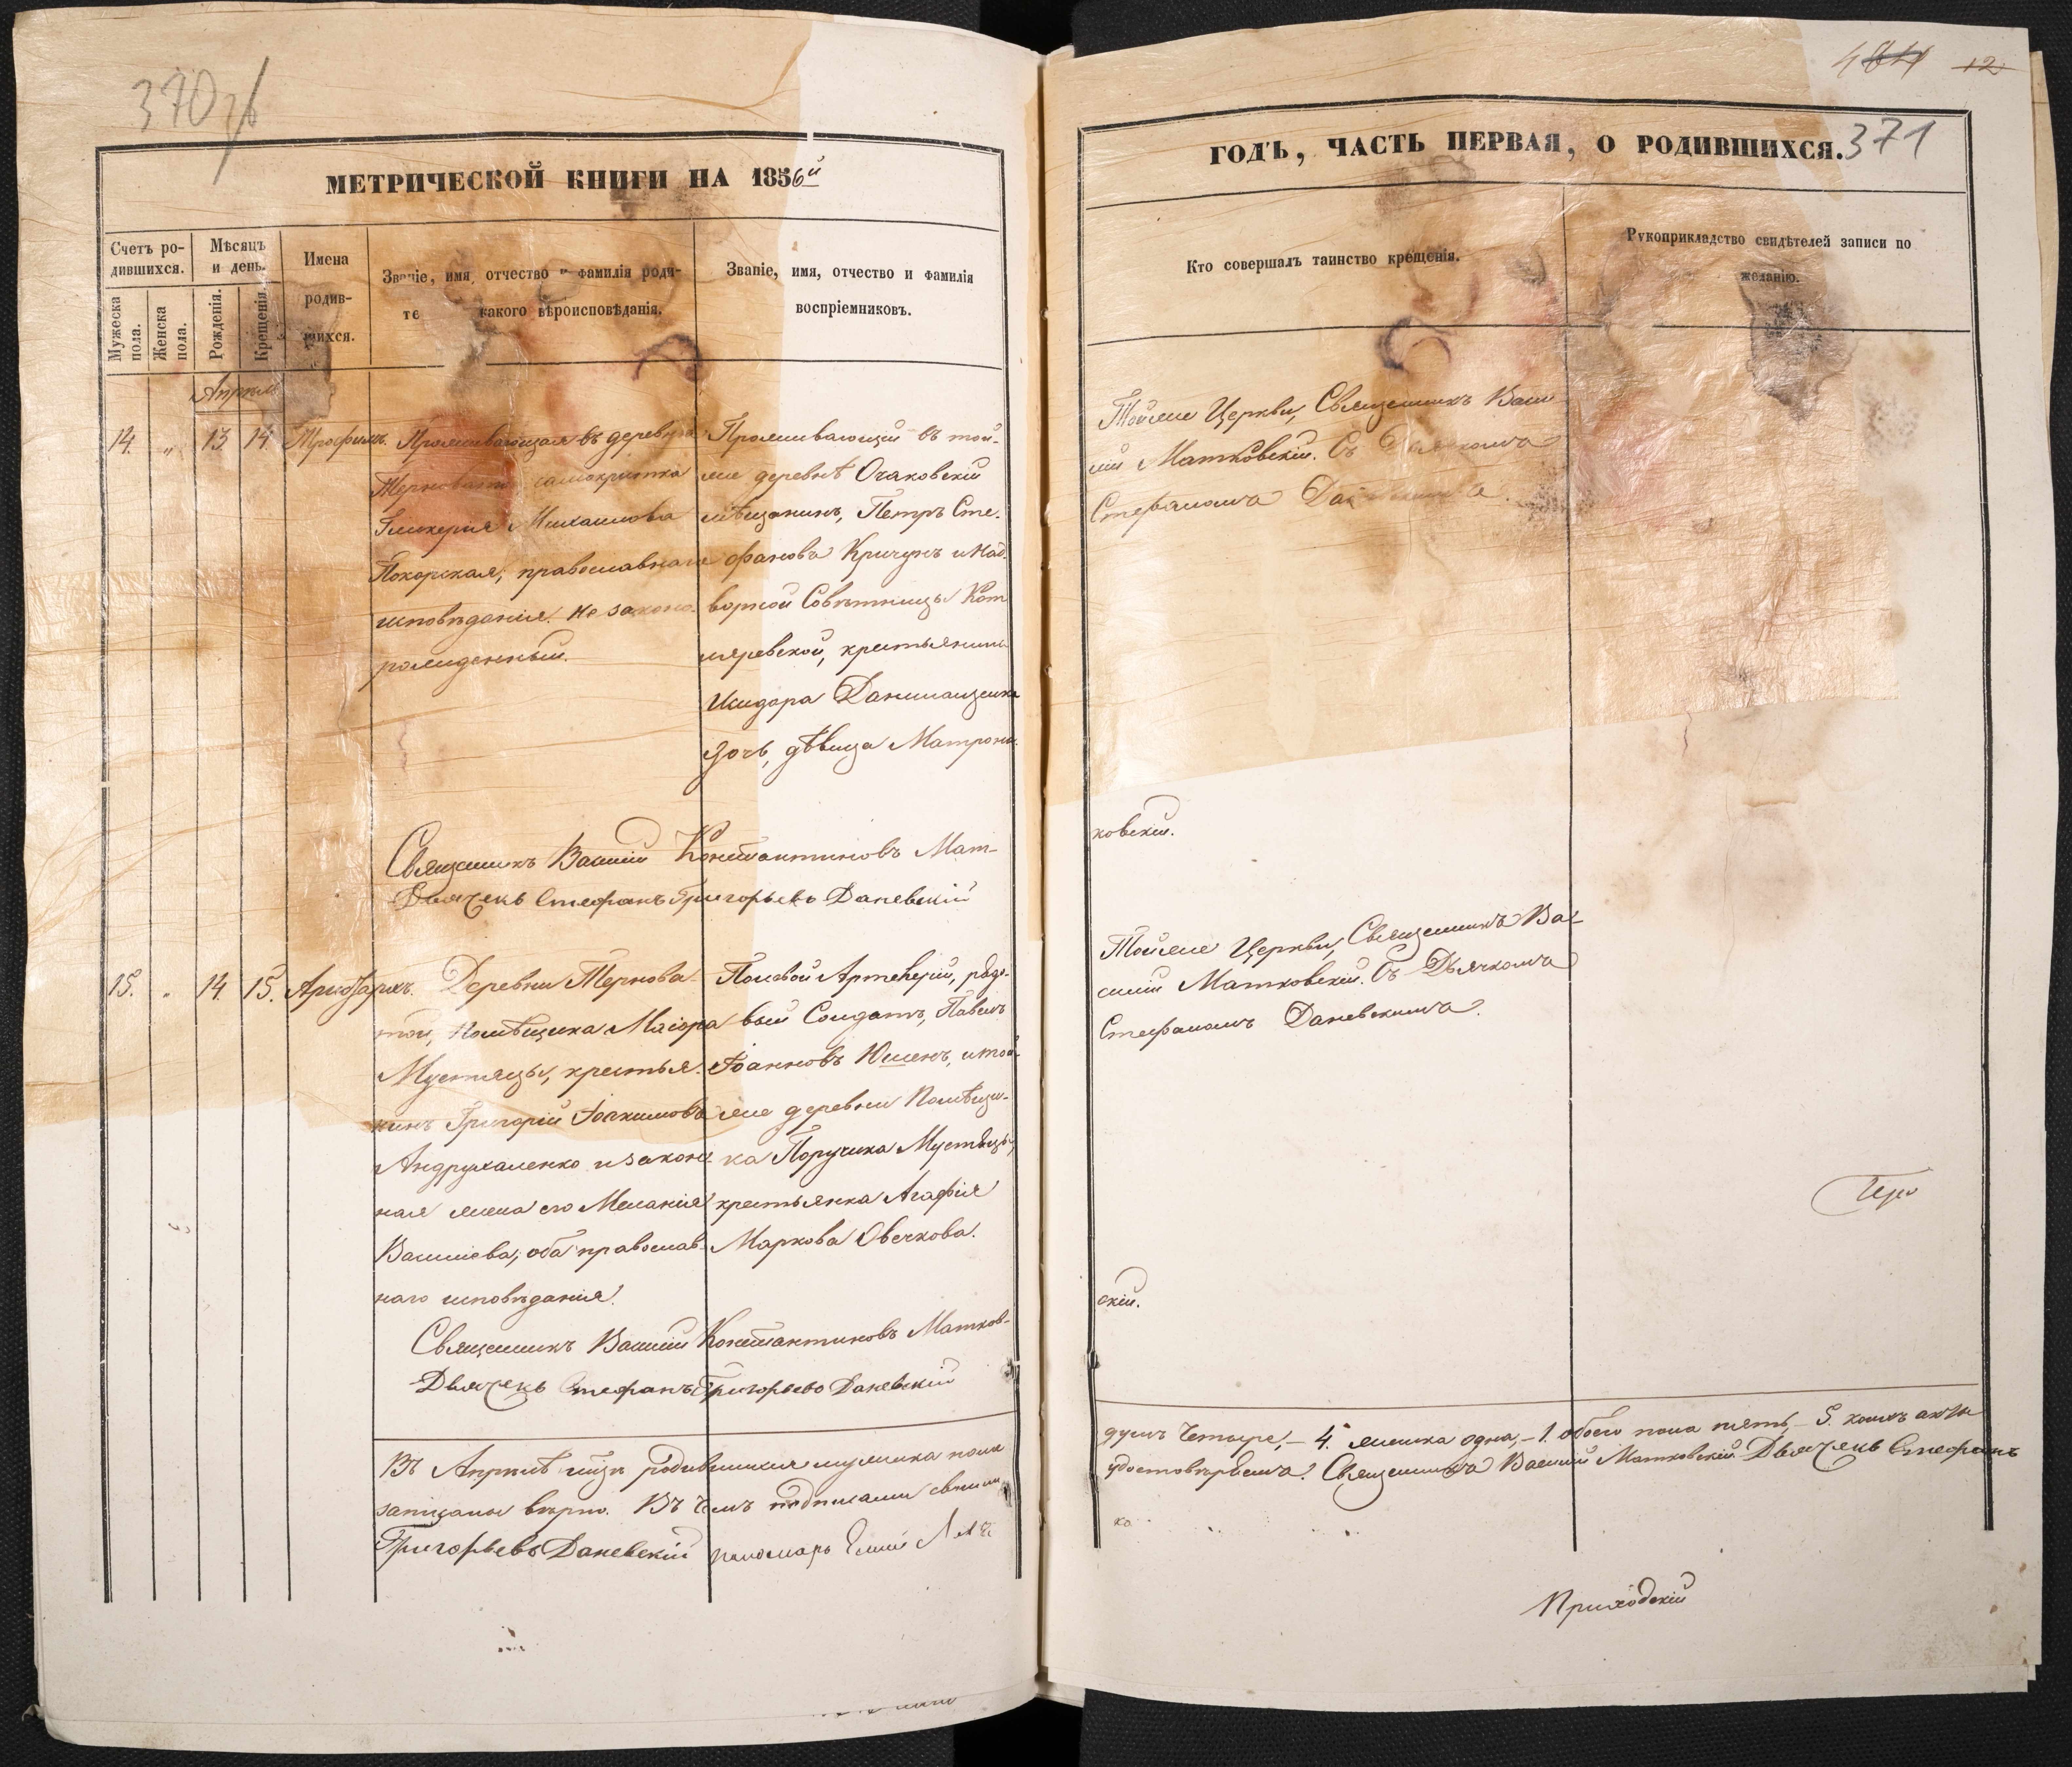 370 зв
МЕТРИЧЕСКОЙ КНИГИ НА 1856й
Счетъ ро-
дившихся.
Мужеска
пола.
Женска
пола.
Мѣсяцъ
и день.
Рожденія.
Крещенія.
Имена
родив-
шихся.
Званіе, имя, отчество и фамилія роди-
те какого вѣроисповѣданія.
Званіе, имя, отчество и фамилія
воспріемниковъ.
Апрель
14. " 13 14 Трофимъ.
Проживающая въ деревнѣ
Терноватой
Гликерія Михаилова
православнаго
исповѣданія. Не законо-
рожденный.
Проживающій въ той-
же деревнѣ Очаковскій
мѣщанинъ, Петръ Сте-
фановъ Кричунъ и Над-
ворной Совѣтницы Кот
ляревской, крестьянина
Исидора
дочь, дѣвица Матрона.
Священникъ Василій Константиновъ Мат-
Дьячекъ Стефанъ Григорьевъ Даневскій
15. " 14. 15. Аристархъ.
Деревни Тернова-
той, Помѣщика Маіора
Мустяцы, крестья-
нинъ Григорій Іоакимовъ
Андрухаленко и закон-
ная жена его Меланія
Василіева, оба православ-
наго исповѣданія.
Полевой Артелеріи, рядо-
вый Солдатъ, Павелъ
Іоанновъ Юшенъ, и той-
же деревни Помѣщи-
ка Поручика Мустяцы,
крестьянка Агафія
Маркова Овечкова.
Священникъ Василій Константиновъ Матков-
Дьячекъ Стефанъ Григорьевъ Даневскій
Въ Апрѣлѣ м-цѣ родившихся мужеска пола
записано вѣрно. Въ чемъ подписами своими
Григорьевъ Даневскій пономарь
12
371
ГОДЪ, ЧАСТЬ ПЕРВАЯ, О РОДИВШИХСЯ.
Кто совершалъ таинство крещенія.
Рукоприкладство свидѣтелей записи по
желанію.
Тойже Церкви, Священникъ Васи
лій Матковскій. Съ Дьячкомъ
Стефаномъ
ковскій.
Тойже Церкви, Священникъ Ва-
силій Матковскій. Съ Дьячкомъ
Стефаномъ Даневскимъ.
скій.
душъ четыре, – 4. женска одна, – 1. обоего пола пять, – 5. коихъ акты
удостовѣряемъ. Священникъ Василій Матковскій. Дьячекъ Стефанъ
ка
Приходскій